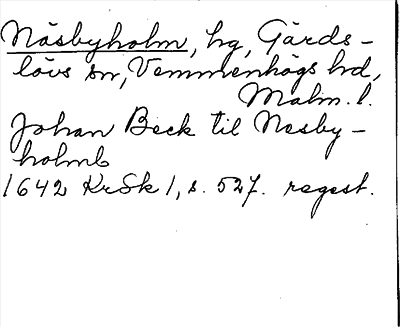 Näsbyholm, hg, Gärds-
lövs sn, Vemmenhögs hd,
Malm. l.
Johan Beck til Nesby-
holmb
1642 KrSk 1, s. 527. regest.